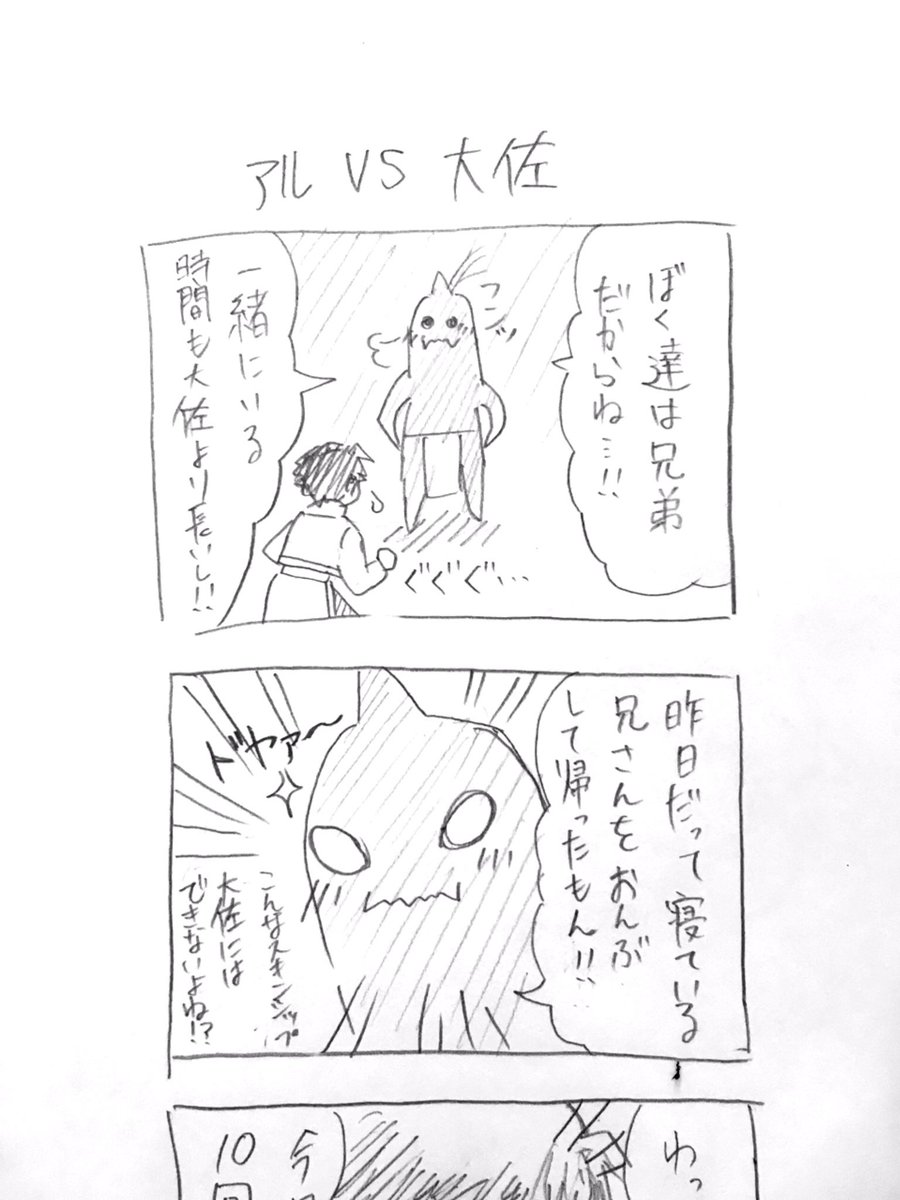 アル VS 大佐
ぼく達は兄弟
だからね…!!
フンッ
一緒にいる
時間も大佐より長いし!!
ぐぐぐ…
昨日だって寝ている
兄さんをおんぶ
して帰ったもん!!
ドヤァ〜
こんなスキンシップ
大佐には
できないよね!?
わっ
10回